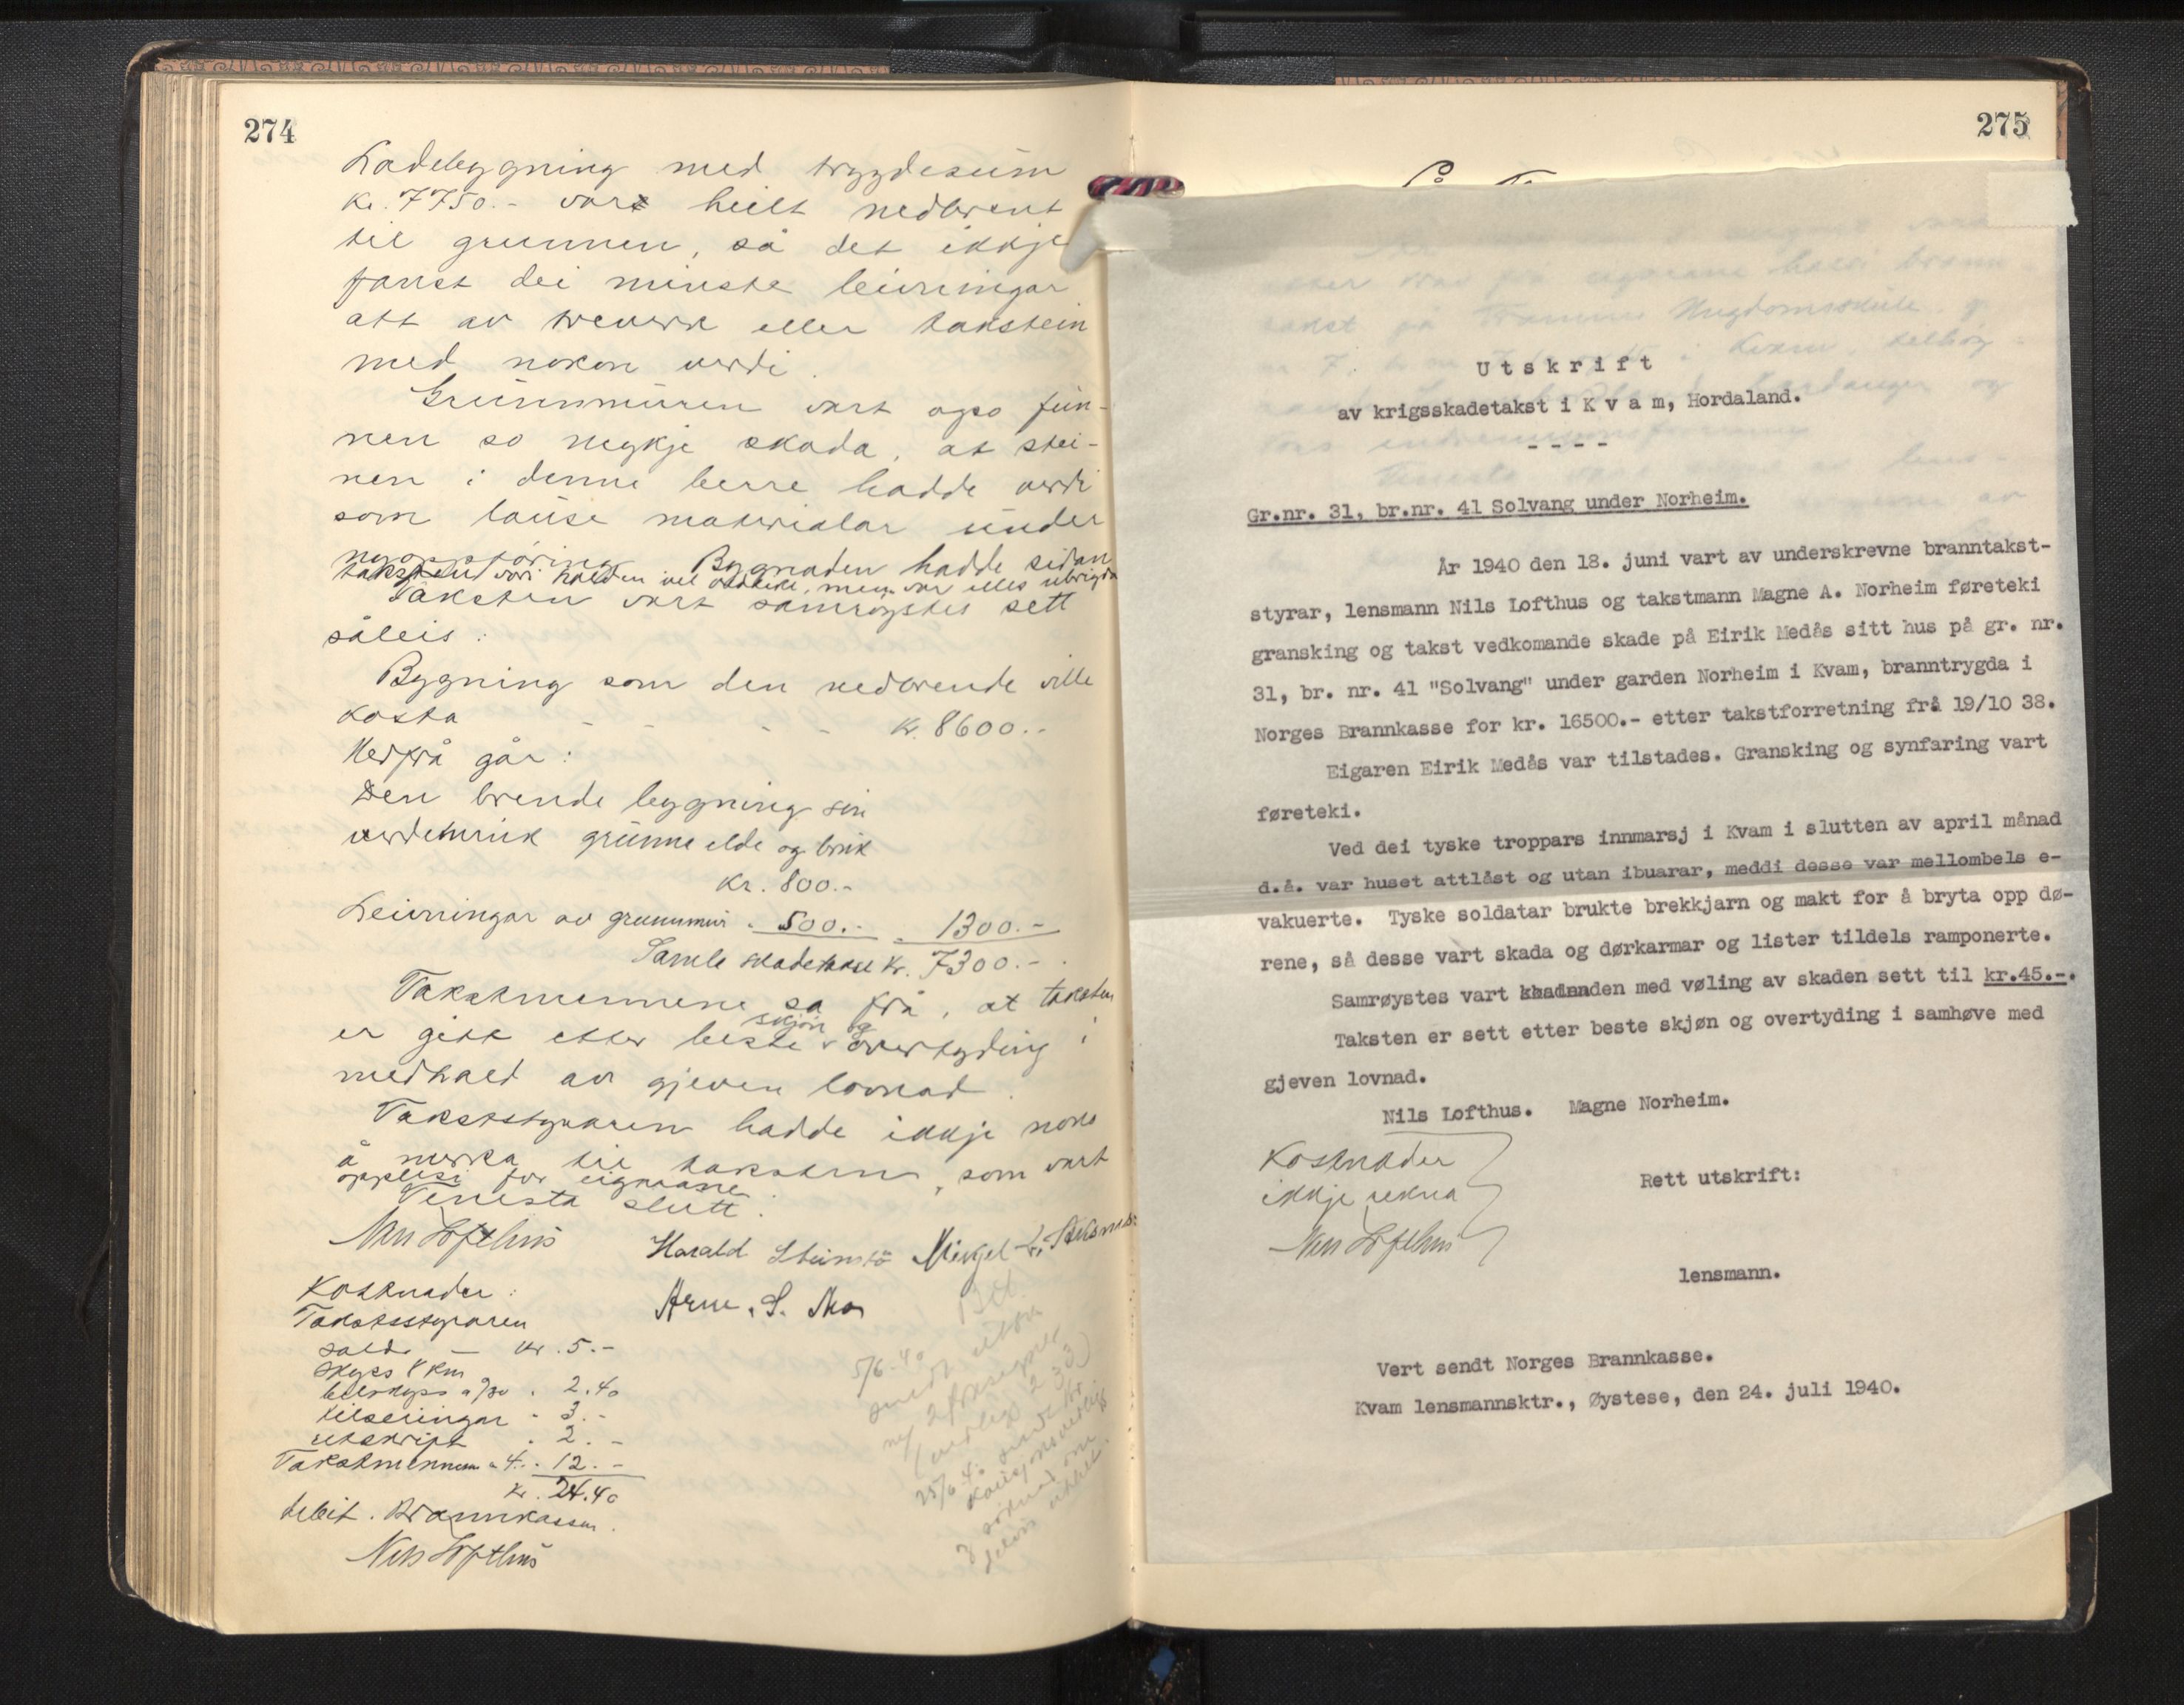 274
Ladebygning med trygdesum
kr. 7750.- vart heilt nedbrent
til grunnen, så det ikkje
fanst dei minste leivningar
att av treverk eller takstein
med nokon verdi.
Grunnmuren vart ogso fun-
nen so mykje skada, at stei-
nen i denne berre hadde verdi
som lause materialar under
nyoppføring. Bygnaden hadde sidan
taksten vori halden vel vedlike, men var elles ubrigda
Taksten vart samrøystes sett
såleis:
Bygning som den nedbrende ville
kosta - - - - kr. 8600.-
Herfrå går:
Den brende bygning sin
verdemink grunna elde og bruk
kr. 800.-
Leivningar av grunnmur - 500.- - 1300.-
Samla skadetakst kr. 7300.-
Takstmennene sa frå, at taksten
er gitt etter beste skjøn og overtyding i
medhald av gjeven lovnad.
Takststyraren hadde ikkje noko
å merka til taksten, som vart
opplesi for eigarane.
Tenesta slutt.
Nils Lofthus Harald Steinstø Mikjel
Arne S. Mo
Kostnader:
Takststyraren
kr. 5.-
skyss 8 km
bilskyss a /30 - 2.40
tilseiingar - 3.-
utskrift - 2.-
Takstmennene a 4.- - 12.-
kr. 24.40
debit. Brannkassen.
Nils Lofthus
5/6-40
sendt
25/6-40
275
Utskrift
av krigsskadetakst i K v a m, Hordaland.
- - - -
Gr.nr. 31, br.nr. 41 Solvang under Norheim.
År 1940 den 18. juni vart av underskrevne branntakst-
styrar, lensmann Nils Lofthus og takstmann Magne A. Norheim føreteki
gransking og takst vedkomande skade på Eirik Medås sitt hus på gr. nr.
31, br. nr. 41 "Solvang" under garden Norheim i Kvam, branntrygda i
Norges Brannkasse for kr. 16500.- etter takstforretning frå 19/10 38.
Eigaren Eirik Medås var tilstades. Gransking og synfaring vart
føreteki.
Ved dei tyske troppars innmarsj i Kvam i slutten av april månad
d.å. var huset attlåst og utan ibuarar, meddi desse var mellombels e-
vakuerte. Tyske soldatar brukte brekkjarn og makt for å bryta opp dø-
rene, så desse vart skada og dørkarmar og lister tildels ramponerte.
Samrøystes vart skaden med vøling av skaden sett til kr.45.-.
Taksten er sett etter beste skjøn og overtyding i samhøve med
gjeven lovnad.
Nils Lofthus. Magne Norheim.
Kostnader
ikkje rekna
Nils Lofthus
Rett utskrift:
lensmann.
Vert sendt Norges Brannkasse.
Kvam lensmannsktr., Øystese, den 24. juli 1940.